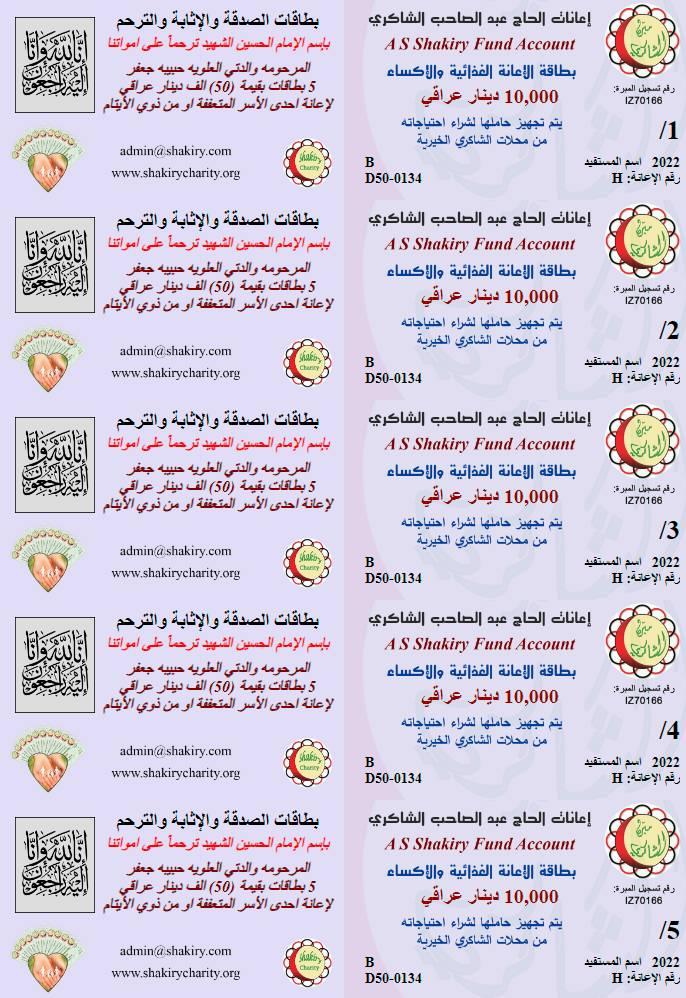 مبرة الشاكري
رقم تسجيل المبرة:
IZ70166
إعانات الحاج عبد الصاحب الشاكري
A S Shakiry Fund Account
بطاقة الأعانة الغذائية والأكساء
10,000 دينار عراقي
يتم تجهيز حاملها لشراء احتياجاته
من محلات الشاكري الخيرية
/1
2022 اسم المستفيد B
رقم الإعانة: H D50-0134
بطاقات الصدقة والإثابة والترحم
بإسم الإمام الحسين الشهيد ترحماً على امواتنا
المرحومه والدتي العلويه حبيبه جعفر
5 بطاقات بقيمة (50) الف دينار عراقي
لإعانة احدى الأسر المتعففة او من ذوي الأيتام
إنا لله وإنا إليه راجعون
admin@shakiry.com
www.shakirycharity.org
Shakiry Charity
مبرة الشاكري
رقم تسجيل المبرة:
IZ70166
إعانات الحاج عبد الصاحب الشاكري
A S Shakiry Fund Account
بطاقة الأعانة الغذائية والأكساء
10,000 دينار عراقي
يتم تجهيز حاملها لشراء احتياجاته
من محلات الشاكري الخيرية
/2
2022 اسم المستفيد B
رقم الإعانة: H D50-0134
بطاقات الصدقة والإثابة والترحم
بإسم الإمام الحسين الشهيد ترحماً على امواتنا
المرحومه والدتي العلويه حبيبه جعفر
5 بطاقات بقيمة (50) الف دينار عراقي
لإعانة احدى الأسر المتعففة او من ذوي الأيتام
إنا لله وإنا إليه راجعون
admin@shakiry.com
www.shakirycharity.org
Shakiry Charity
مبرة الشاكري
رقم تسجيل المبرة:
IZ70166
إعانات الحاج عبد الصاحب الشاكري
A S Shakiry Fund Account
بطاقة الأعانة الغذائية والأكساء
10,000 دينار عراقي
يتم تجهيز حاملها لشراء احتياجاته
من محلات الشاكري الخيرية
/3
2022 اسم المستفيد B
رقم الإعانة: H D50-0134
بطاقات الصدقة والإثابة والترحم
بإسم الإمام الحسين الشهيد ترحماً على امواتنا
المرحومه والدتي العلويه حبيبه جعفر
5 بطاقات بقيمة (50) الف دينار عراقي
لإعانة احدى الأسر المتعففة او من ذوي الأيتام
إنا لله وإنا إليه راجعون
admin@shakiry.com
www.shakirycharity.org
Shakiry Charity
مبرة الشاكري
رقم تسجيل المبرة:
IZ70166
إعانات الحاج عبد الصاحب الشاكري
A S Shakiry Fund Account
بطاقة الأعانة الغذائية والأكساء
10,000 دينار عراقي
يتم تجهيز حاملها لشراء احتياجاته
من محلات الشاكري الخيرية
/4
2022 اسم المستفيد B
رقم الإعانة: H D50-0134
بطاقات الصدقة والإثابة والترحم
بإسم الإمام الحسين الشهيد ترحماً على امواتنا
المرحومه والدتي العلويه حبيبه جعفر
5 بطاقات بقيمة (50) الف دينار عراقي
لإعانة احدى الأسر المتعففة او من ذوي الأيتام
إنا لله وإنا إليه راجعون
admin@shakiry.com
www.shakirycharity.org
Shakiry Charity
مبرة الشاكري
رقم تسجيل المبرة:
IZ70166
إعانات الحاج عبد الصاحب الشاكري
A S Shakiry Fund Account
بطاقة الأعانة الغذائية والأكساء
10,000 دينار عراقي
يتم تجهيز حاملها لشراء احتياجاته
من محلات الشاكري الخيرية
/5
2022 اسم المستفيد B
رقم الإعانة: H D50-0134
بطاقات الصدقة والإثابة والترحم
بإسم الإمام الحسين الشهيد ترحماً على امواتنا
المرحومه والدتي العلويه حبيبه جعفر
5 بطاقات بقيمة (50) الف دينار عراقي
لإعانة احدى الأسر المتعففة او من ذوي الأيتام
إنا لله وإنا إليه راجعون
admin@shakiry.com
www.shakirycharity.org
Shakiry Charity